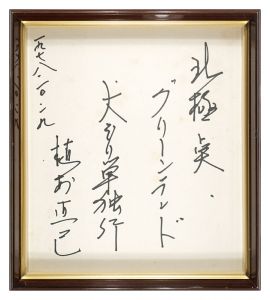 北極点・
グリーンランド
犬ぞり単独行
植村直己
一九七八・一〇・一九